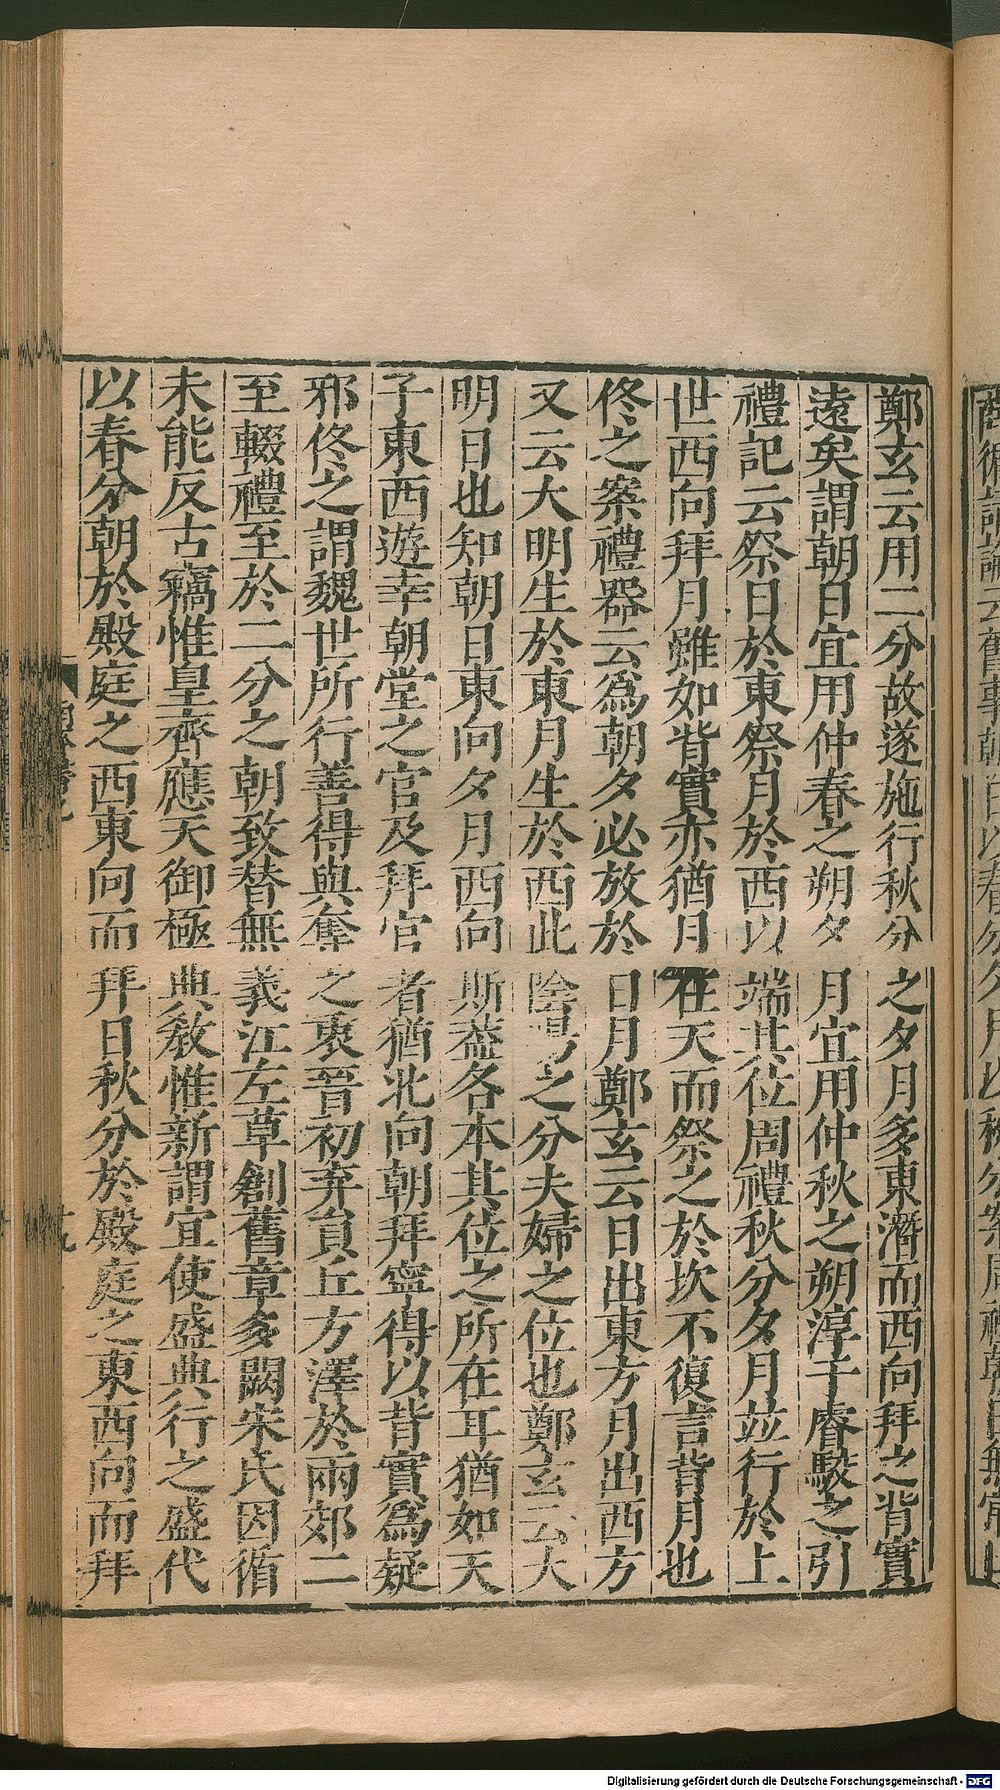 鄭玄云用二分故遂施行秋分之夕月多東潛而西向拜之背實
遠矣謂朝日宜用仲春之朔夕月宜用仲秋之朔淳于睿駮之引
禮記云祭日於東祭月於西以端其位周禮秋分夕月並行於上
世西向拜月雖如背實亦猶月在天而祭之於坎不復言背月也
佟之案禮器云爲朝夕必放於日月鄭玄云日出東方月出西方
又云大明生於東月生於西此陰陽之分夫婦之位也鄭玄云大
明日也知朝日東向夕月西向斯蓋各本其位之所在耳猶如天
子東西遊幸朝堂之官及拜官者猶北向朝拜寧得以背實爲疑
邪佟之謂魏世所行善得與奪之衷晉初弃員丘方澤於兩郊二
至輟禮至於二分之朝致替無義江左草創舊章多闕宋氏因循
未能反古竊惟皇齊應天御極典教惟新謂宜使盛典行之盛代
以春分朝於殿庭之西東向而拜日秋分於殿庭之東西向而拜
Digitalisierung gefördert durch die Deutsche Forschungsgemeinschaft - DFG